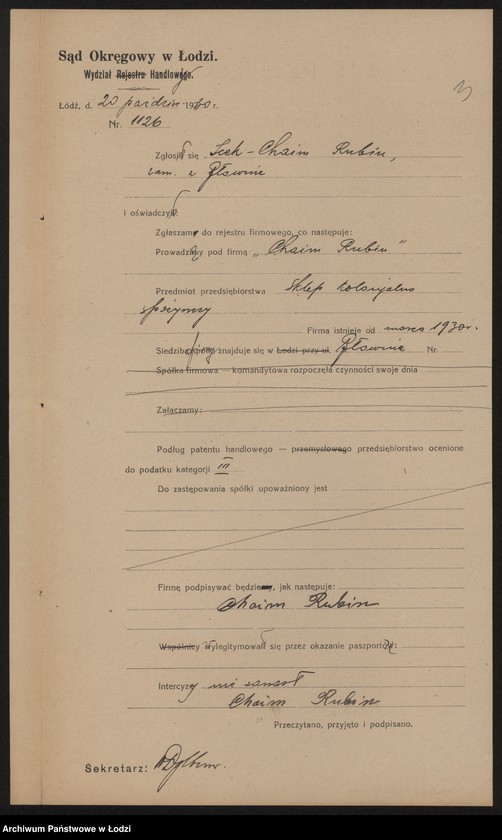 Sąd Okręgowy w Łodzi.
Wydział Rejestru Handlowego.
Łódź, d. 20 paździer 1930 r.
Nr. 1126
3
Zgłosił się Icek-Chaim Rubin,
zam. w Głownie
i oświadczył:
Zgłaszam do rejestru firmowego, co następuje:
Prowadzę pod firmą „Chaim Rubin"
Przedmiot przedsiębiorstwa Sklep kolonjalno
spożywczy
Firma istnieje od marca 1930 r.
Siedziba znajduje się w Łodzi przy ul. Głownie Nr.
Spółka firmowa — komandytowa rozpoczęła czynności swoje dnia
Załączamy:
Podług patentu handlowego — przemysłowego przedsiębiorstwo ocenione
do podatku kategorji III
Do zastępowania spółki upoważniony jest
Firmę podpisywać będę, jak następuje:
Chaim Rubin
Wspólnicy wylegitymował się przez okazanie paszportu:
Intercyzy nie zawarł
Chaim Rubin
Przeczytano, przyjęto i podpisano.
Sekretarz:
Archiwum Państwowe w Łodzi